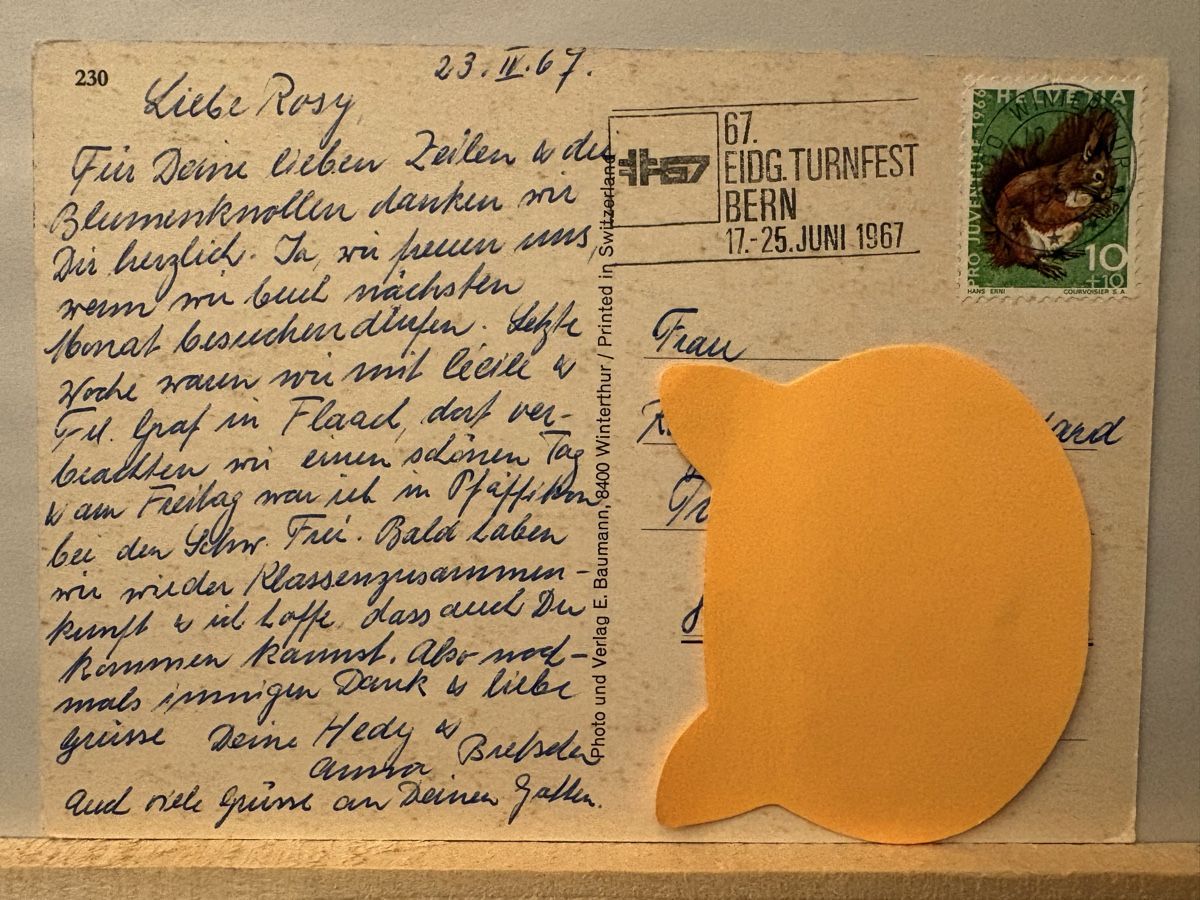 230
23. IV. 67.
Liebe Rosy,
Für Deine lieben Zeilen & die
Blumenknollen danken wir
Dir herzlich. Ja, wir freuen uns,
wenn wir Euch nächsten
Monat besuchen dürfen. Letzte
Woche waren wir mit Cécile &
Frl. Graf in Flaach, dort ver-
brachten wir einen schönen Tag
& am Freitag war ich in Pfäffikon
bei den Schw. Frei. Bald haben
wir wieder Klassenzusammen-
kunft & ich hoffe, dass auch Du
kommen kannst. Also noch-
mals innigen Dank & liebe
Grüsse Deine Hedy &
Anna
Auch viele Grüsse an Deinen Gatten.
Photo und Verlag E. Baumann, 8400 Winterthur / Printed in Switzerland
67.
EIDG. TURNFEST
BERN
17.-25. JUNI 1967
HELVETIA
PRO JUVENTUTE 1966
WINTERTHUR
10
+10
HANS ERNI
COURVOISIER S.A.
Frau